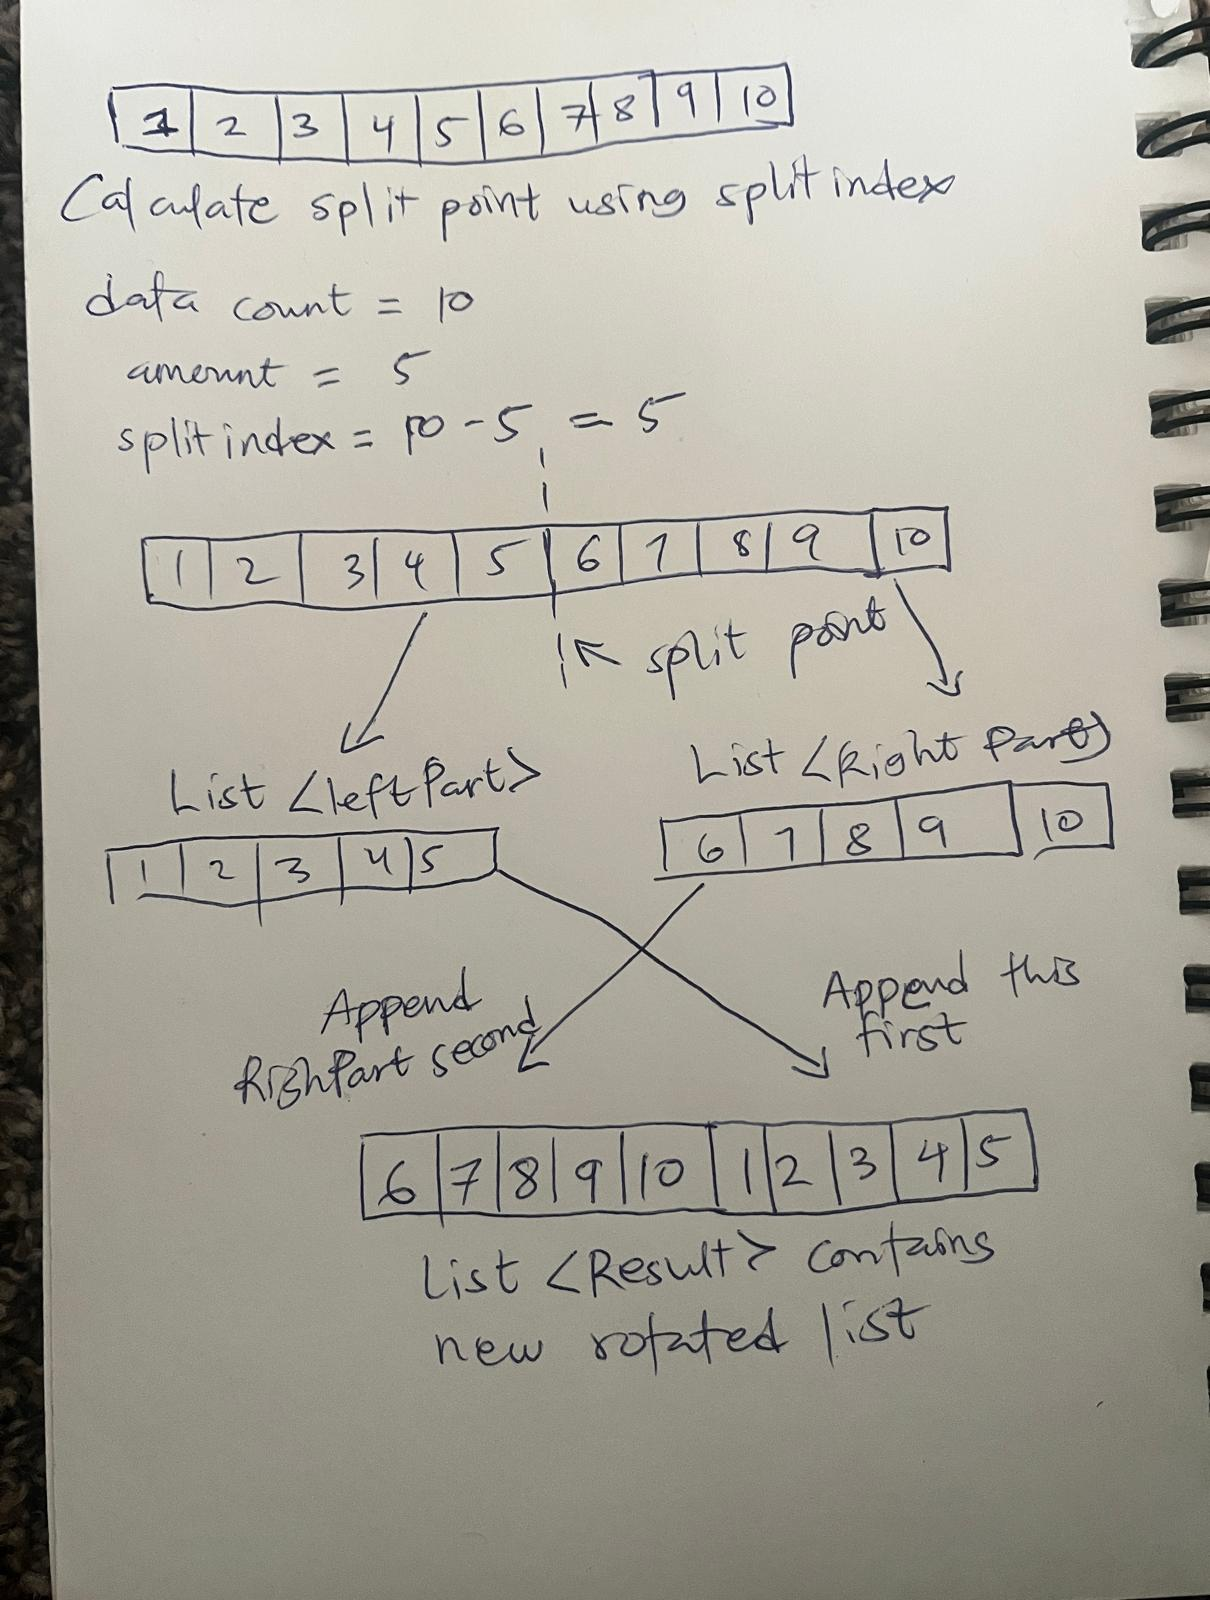 1 2 3 4 5 6 7 8 9 10
Calculate split point using split index
data count = 10
amount = 5
split index = 10 - 5 = 5
1 2 3 4 5 6 7 8 9 10
split point
List <left Part>
List <Right Part>
1 2 3 4 5
6 7 8 9 10
Append
RighPart second
Append this
first
6 7 8 9 10 1 2 3 4 5
List <Result> contains
new rotated list